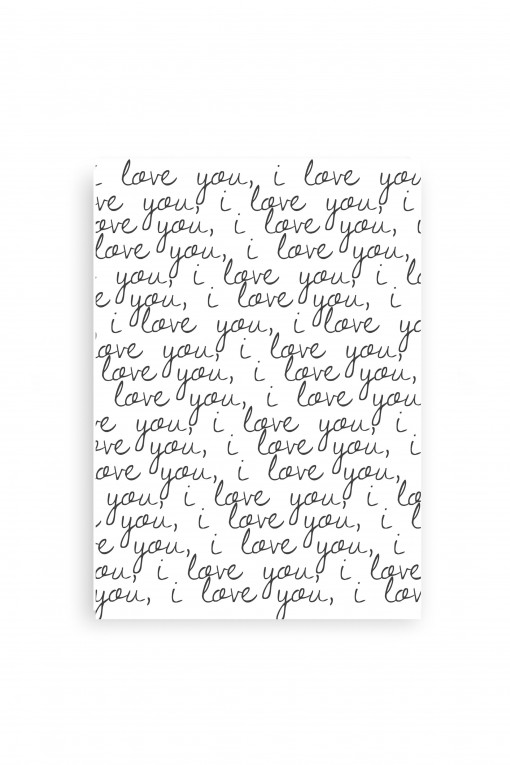 i love you, i love you
ve you, i love you, i
ove you, i love you, i
love you, i love you,
you, i love you, i lo
e you, i love you, i
, i love you, i love yo
ove you, i love you,
love you, i love you,
love you, i love you
ve you, i love you, i
ove you, i love you, i
ove you, i love you,
you, i love you, i lo
you, i love you, i l
e you, i love you, i
ou, i love you, i love
you, i love you, i lov